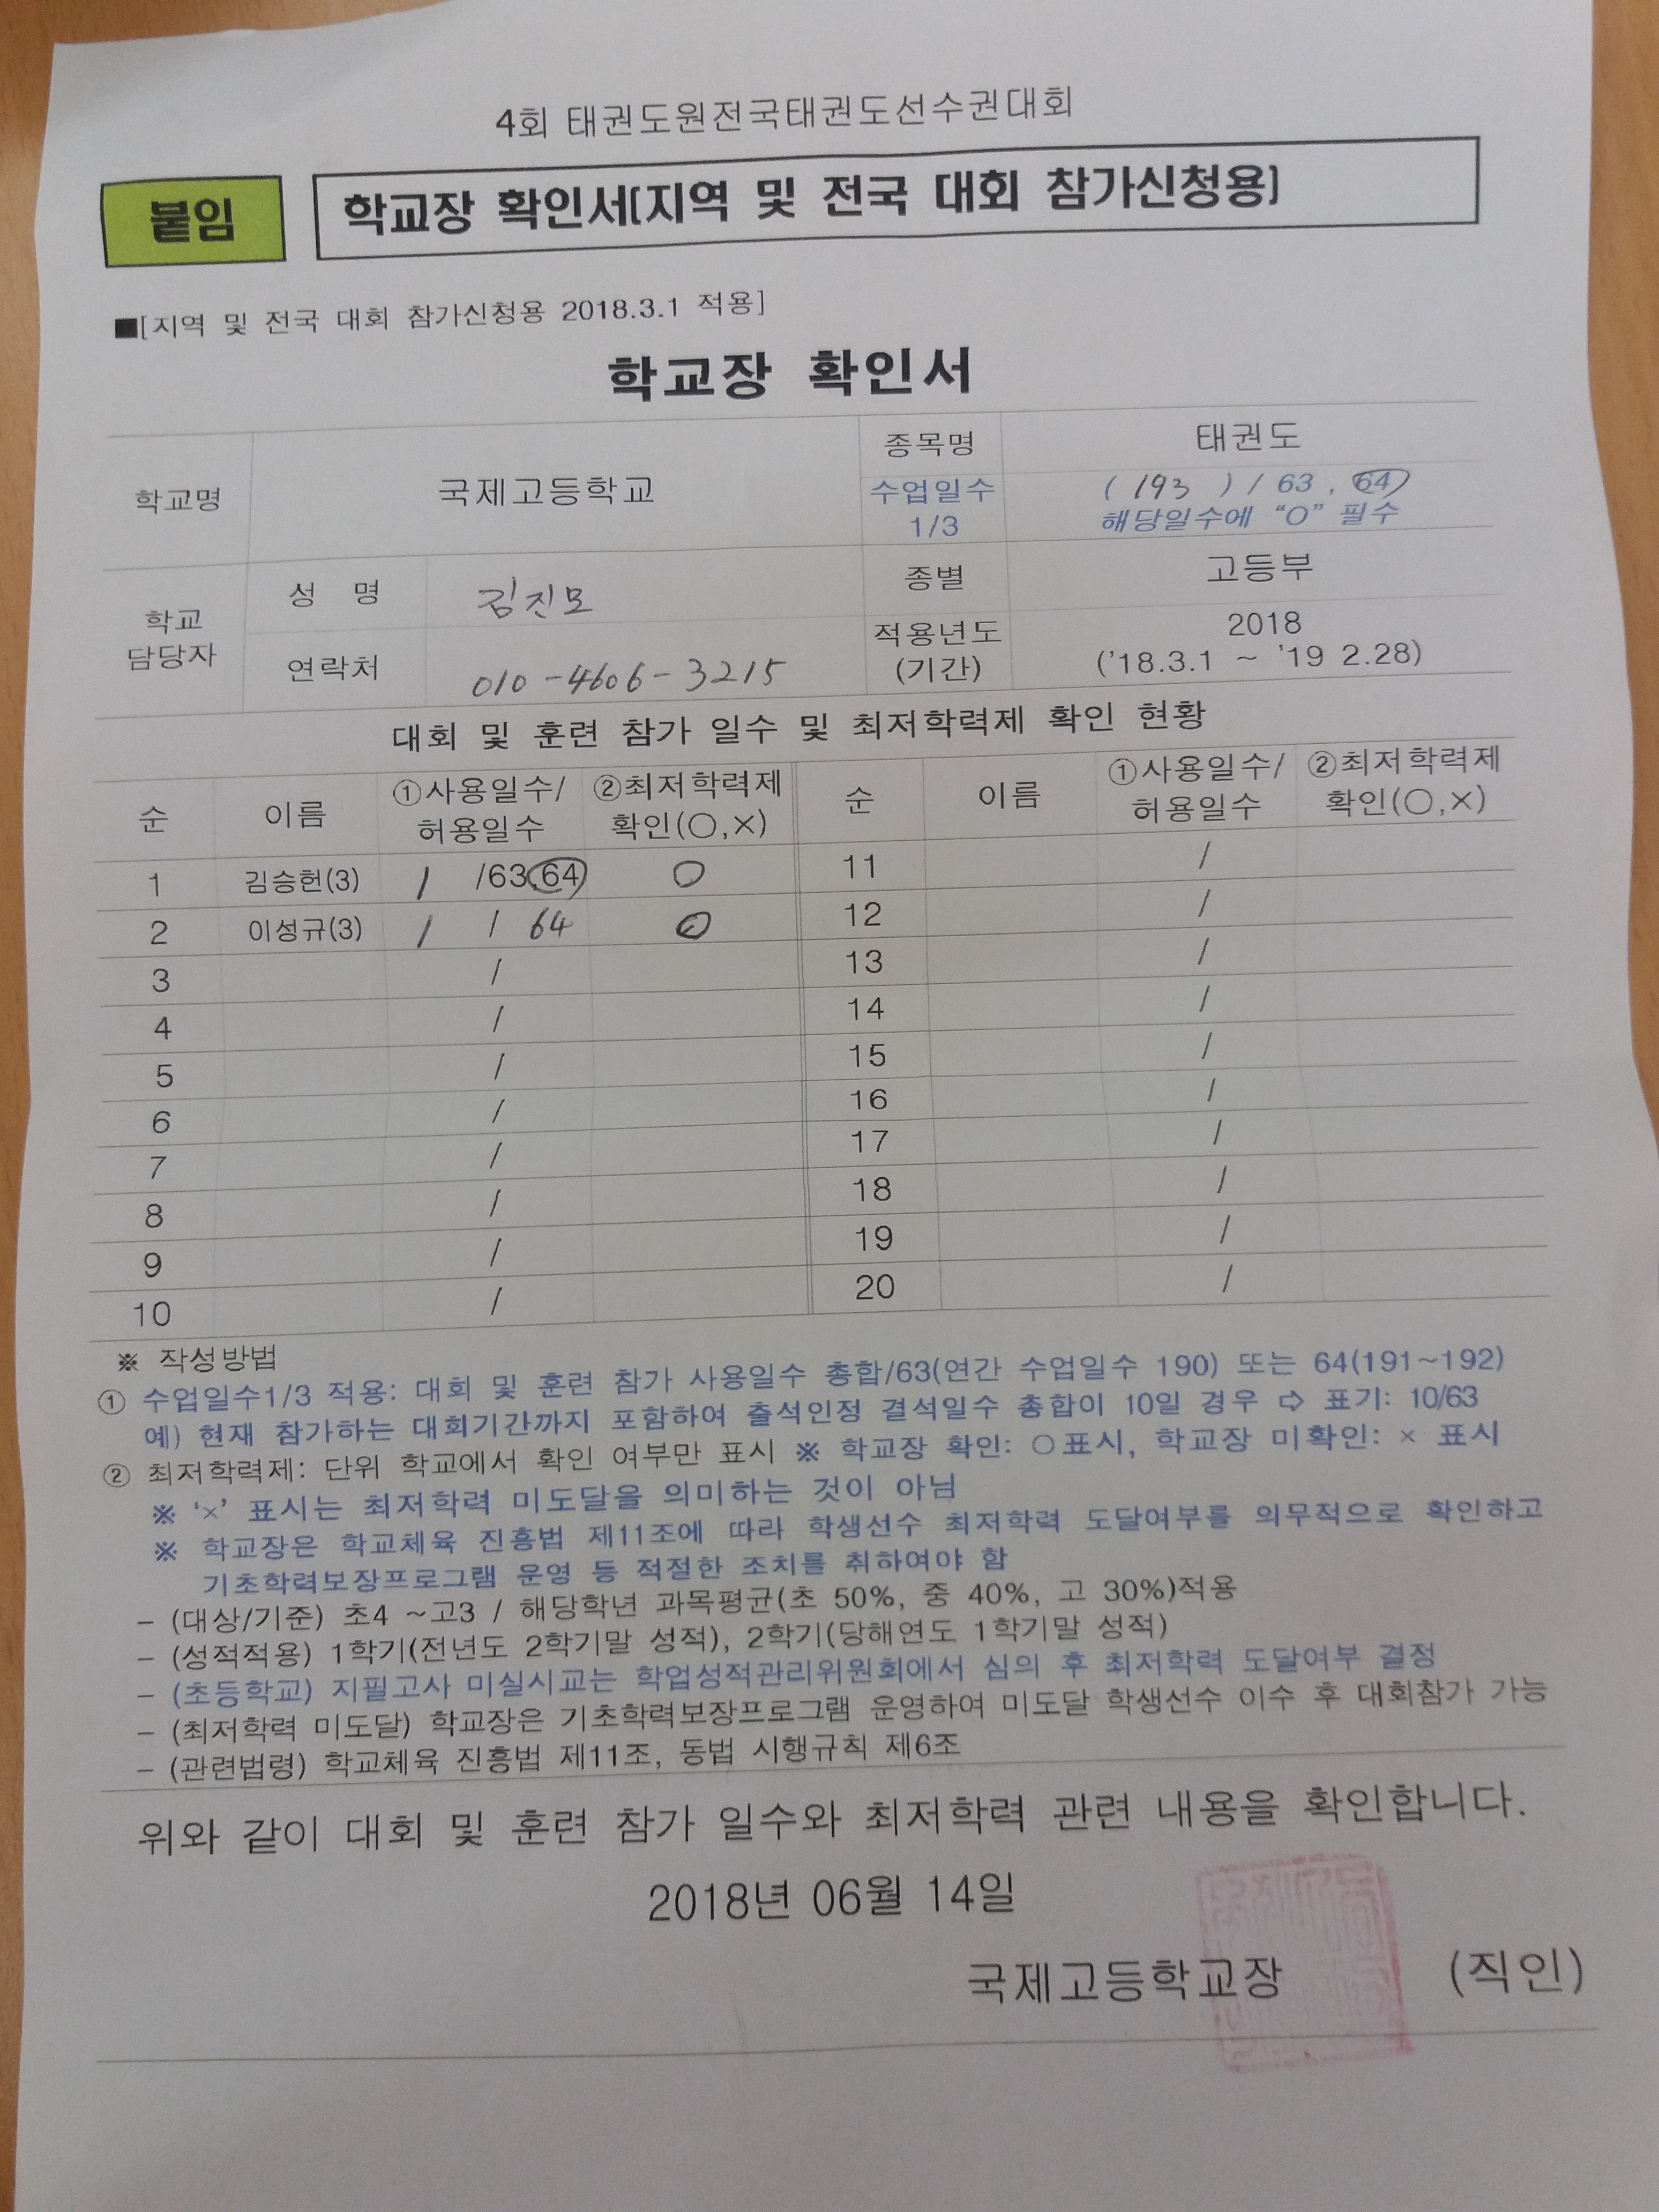 4회 태권도원전국태권도선수권대회
붙임
학교장 확인서[지역 및 전국 대회 참가신청용]
■[지역 및 전국 대회 참가신청용 2018.3.1 적용]
학교장 확인서
학교명 국제고등학교 종목명 태권도
수업일수 1/3 ( 193 ) / 63 , 64
해당일수에 “O” 필수
학교 담당자 성 명 김진모 종별 고등부
연락처 010-4606-3215 적용년도 (기간) 2018
('18.3.1 ~ '19 2.28)
대회 및 훈련 참가 일수 및 최저학력제 확인 현황
순 이름 ①사용일수/허용일수 ②최저학력제 확인(○,×) 순 이름 ①사용일수/허용일수 ②최저학력제 확인(○,×)
1 김승헌(3) 1 /63,64 ○ 11 /
2 이성규(3) 1 / 64 ○ 12 /
3 / 13 /
4 / 14 /
5 / 15 /
6 / 16 /
7 / 17 /
8 / 18 /
9 / 19 /
10 / 20 /
※ 작성방법
① 수업일수1/3 적용: 대회 및 훈련 참가 사용일수 총합/63(연간 수업일수 190) 또는 64(191~192)
예) 현재 참가하는 대회기간까지 포함하여 출석인정 결석일수 총합이 10일 경우 ⇨ 표기: 10/63
② 최저학력제: 단위 학교에서 확인 여부만 표시 ※ 학교장 확인: ○표시, 학교장 미확인: × 표시
※ ‘×’ 표시는 최저학력 미도달을 의미하는 것이 아님
※ 학교장은 학교체육 진흥법 제11조에 따라 학생선수 최저학력 도달여부를 의무적으로 확인하고
기초학력보장프로그램 운영 등 적절한 조치를 취하여야 함
- (대상/기준) 초4 ~고3 / 해당학년 과목평균(초 50%, 중 40%, 고 30%)적용
- (성적적용) 1학기(전년도 2학기말 성적), 2학기(당해연도 1학기말 성적)
- (초등학교) 지필고사 미실시교는 학업성적관리위원회에서 심의 후 최저학력 도달여부 결정
- (최저학력 미도달) 학교장은 기초학력보장프로그램 운영하여 미도달 학생선수 이수 후 대회참가 가능
- (관련법령) 학교체육 진흥법 제11조, 동법 시행규칙 제6조
위와 같이 대회 및 훈련 참가 일수와 최저학력 관련 내용을 확인합니다.
2018년 06월 14일
국제고등학교장 (직인)